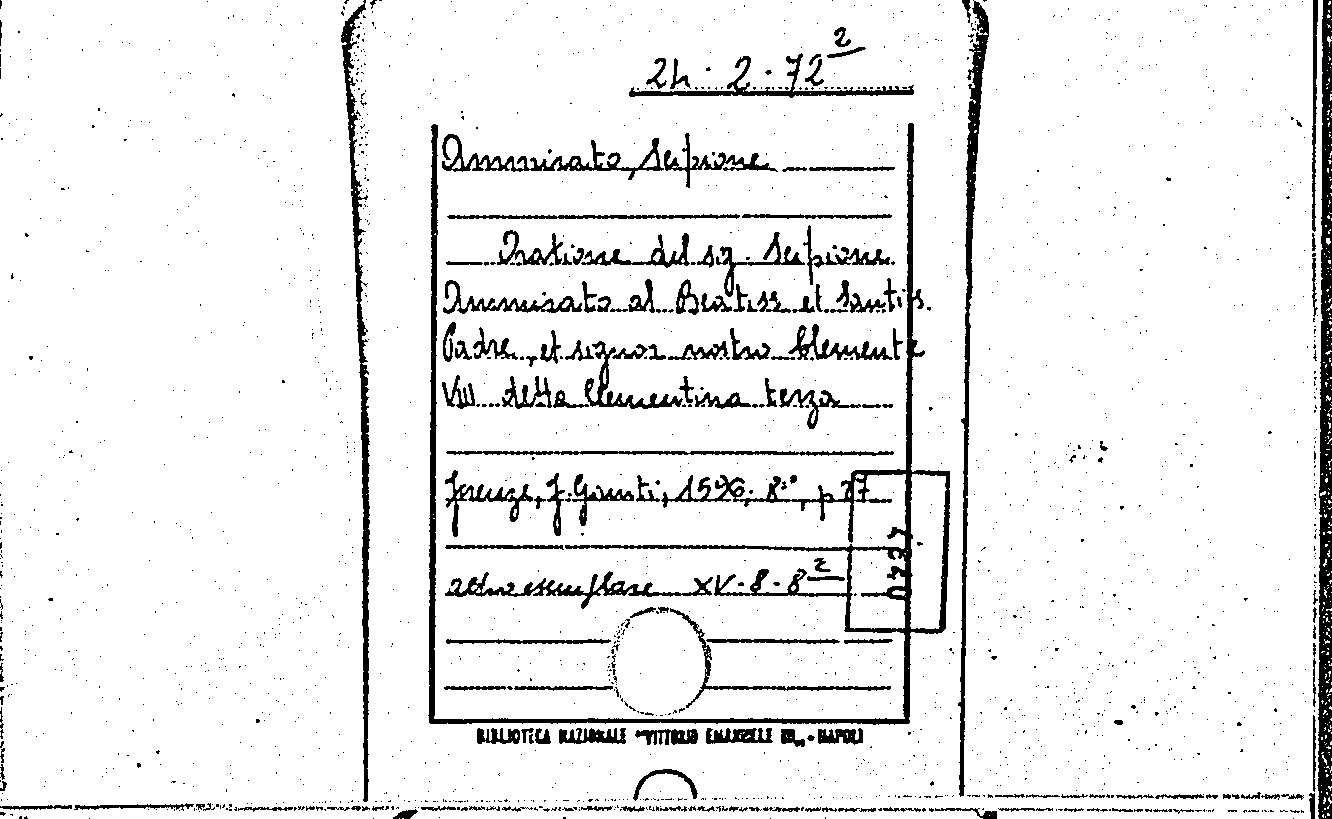 24 · 2 · 72²
Ammirato, Scipione
Oratione del sig. Scipione
Ammirato al Beatiss et Santiss.
Padre, et signor nostro Clemente
VIII detta Clementina terza
Firenze, F. Giunti, 1596, 8°, p 27
altro esemplare XV · 8 · 8²
BIBLIOTECA NAZIONALE "VITTORIO EMANUELE III" - NAPOLI